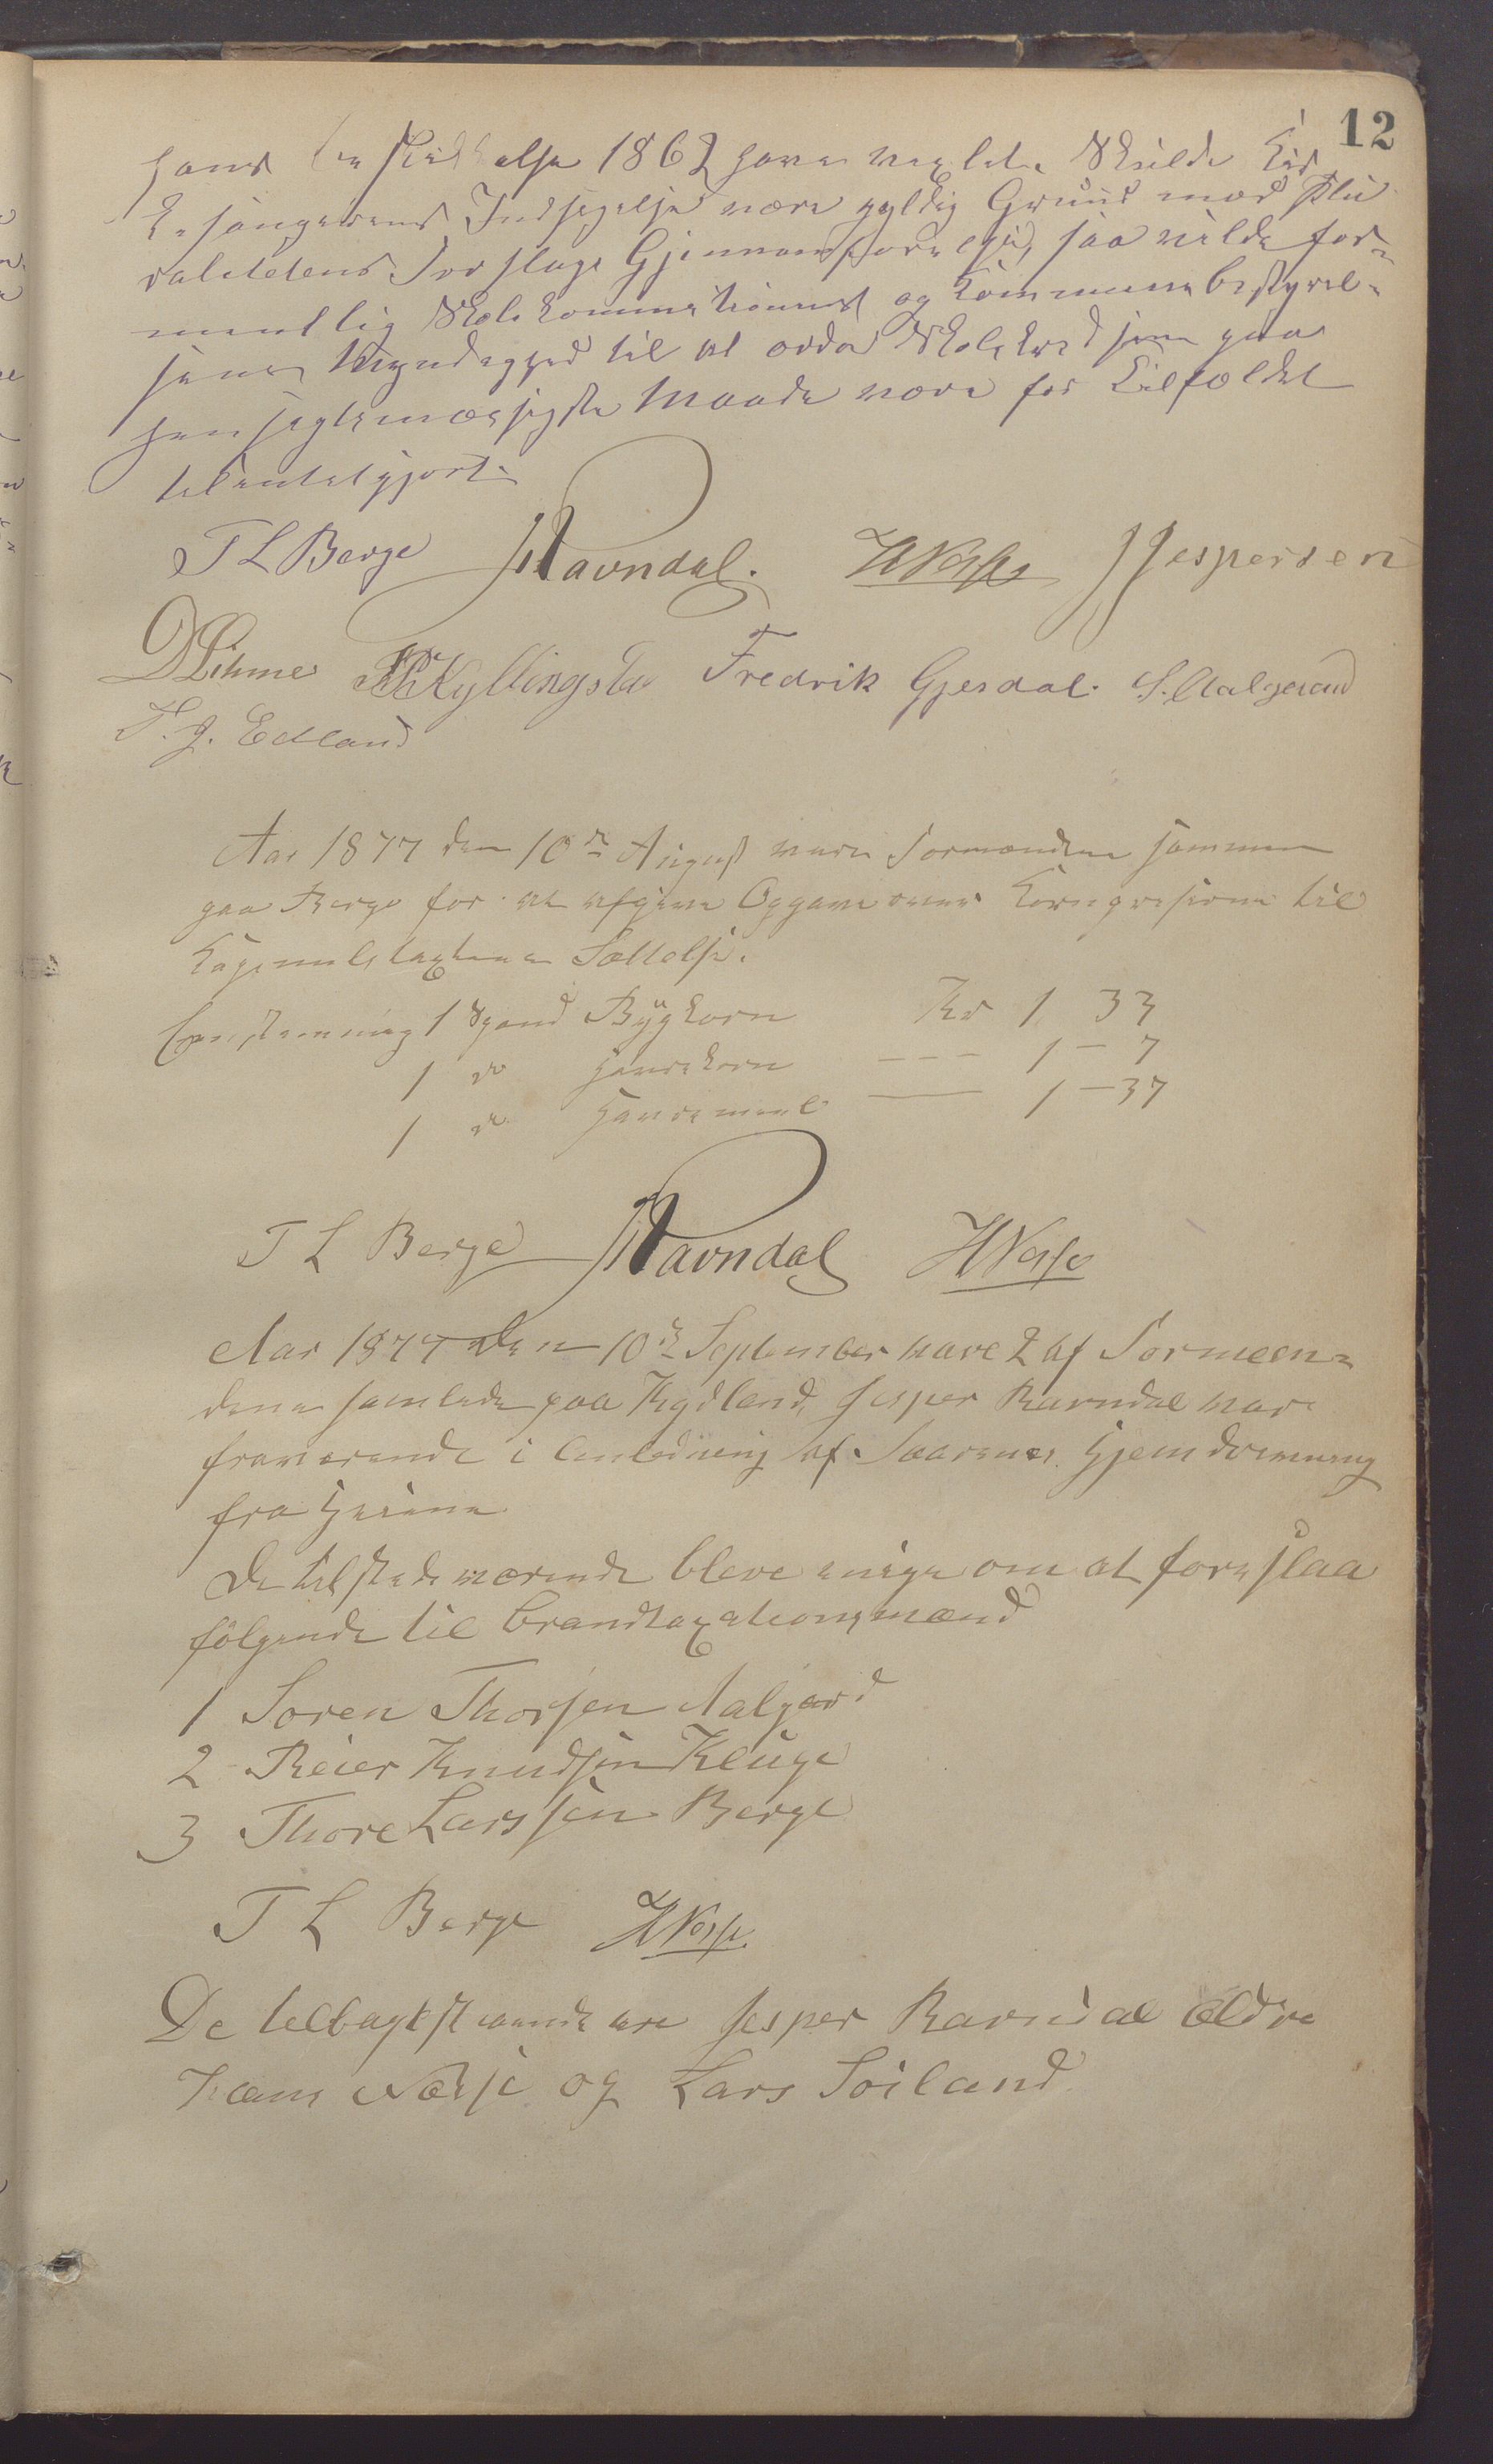 12
hans Beskikkelse 1862 have Skulde Kir
kesangerens Indsigelse være gyldig Grund mod Plu
ralitetens Forslags Gjennemførelse, saa vilde for¬
mentlig Skolekommissionens og Kommunebestyrel¬
sens Myndighed til at ordne Skolekredsene paa
hensigtsmæssigste Maade være for Tilfældet
tilintetgjort.
T L Berge JRavndal. HNesse JJespersen
D Lihme Kyllingstad Fredrik Gjesdal. S. Aalgaard
T. J. Edland
Aar 1877 den 10de August vare Formændene sammen
paa Berge for at afgive Opgave over Kornpriserne til
Kapitelstaxtens Sættelse.
1 Spand Bygkorn Kr 1 33
1 do Havrekorn --- 1 – 7
1 do Havremeel — 1 – 37
T L Berge JRavndal HNesse
Aar 1877 den 10de September vare 2 af Formæn¬
dene samlede paa Kydland, Jesper Ravndal var
fraværende i Anledning af Faarenes Hjemdrivning
fra Heiene
De tilstedeværende bleve enige om at foreslaa
følgende til Brandtaxationsmænd
1 Soren Thorsen Aalgard
2 Reier Knudsen Kluge
3 Thore Larssen Berge
T L Berge HNesse
De tilbagestaaende ere Jesper Ravndal ældre
Hans Næsse og Lars Soiland